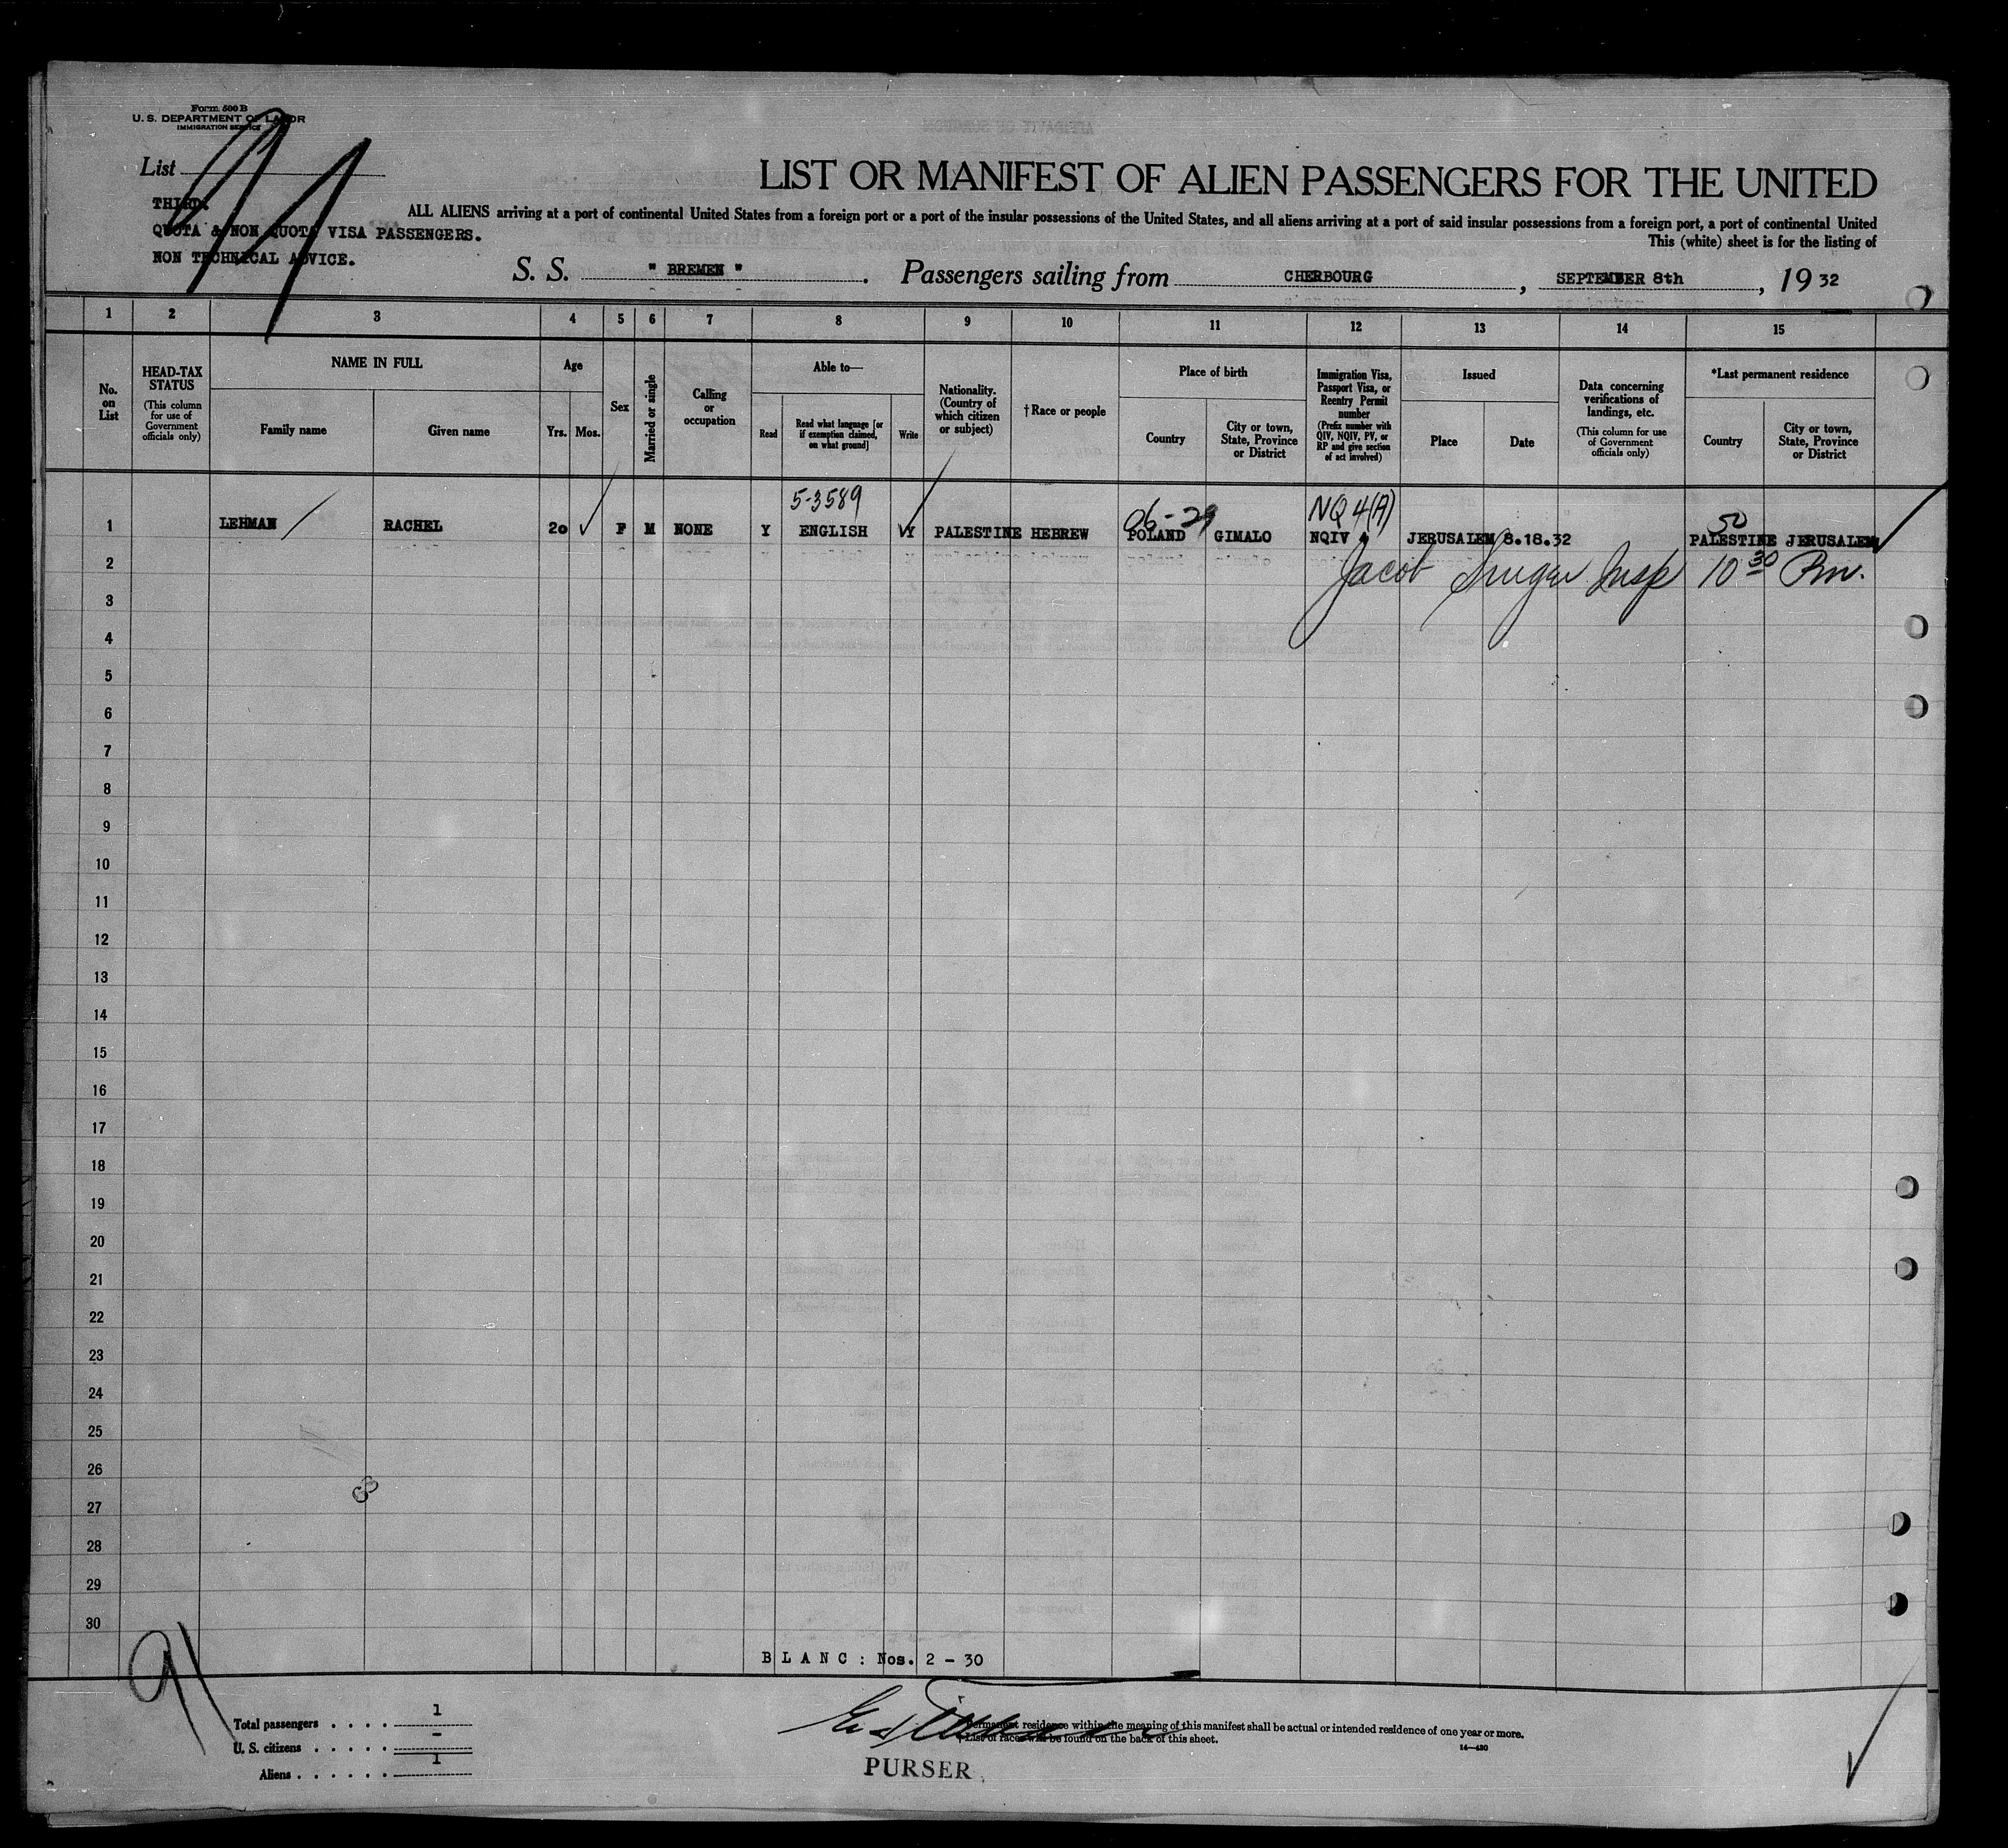 Form 500 B
U. S. DEPARTMENT OF LABOR
IMMIGRATION SERVICE
List
91
THIRD.
QUOTA & NON QUOTA VISA PASSENGERS.
NON TECHNICAL ADVICE.
LIST OR MANIFEST OF ALIEN PASSENGERS FOR THE UNITED
ALL ALIENS arriving at a port of continental United States from a foreign port or a port of the insular possessions of the United States, and all aliens arriving at a port of said insular possessions from a foreign port, a port of continental United
This (white) sheet is for the listing of
S. S. " BREMEN ". Passengers sailing from CHERBOURG, SEPTEMBER 8th, 19 32
1 2 3 4 5 6 7 8 9 10 11 12 13 14 15
No. on List
HEAD-TAX STATUS
(This column for use of Government officials only)
NAME IN FULL
Family name
Given name
Age
Yrs.
Mos.
Sex
Married or single
Calling or occupation
Able to—
Read
Read what language [or if exemption claimed, on what ground]
Write
Nationality. (Country of which citizen or subject)
†Race or people
Place of birth
Country
City or town, State, Province or District
Immigration Visa, Passport Visa, or Reentry Permit number
(Prefix number with QIV, NQIV, PV, or RP and give section of act involved)
Issued
Place
Date
Data concerning verifications of landings, etc.
(This column for use of Government officials only)
*Last permanent residence
Country
City or town, State, Province or District
5-3589 06-29 NQ 4(A) 50
1 LEHMAN RACHEL 20 F M NONE Y ENGLISH Y PALESTINE HEBREW POLAND GIMALO NQIV JERUSALEM 8.18.32 PALESTINE JERUSALEM
Jacob Insp 10 30 Pm.
2
3
4
5
6
7
8
9
10
11
12
13
14
15
16
17
18
19
20
21
22
23
24
25
26
27
28
29
30
BLANC: Nos. 2 - 30
91
Total passengers . . . . 1
U. S. citizens . . . . . -
Aliens . . . . . . 1
Permanent residence within the meaning of this manifest shall be actual or intended residence of one year or more.
List of races will be found on the back of this sheet.
14—430
PURSER